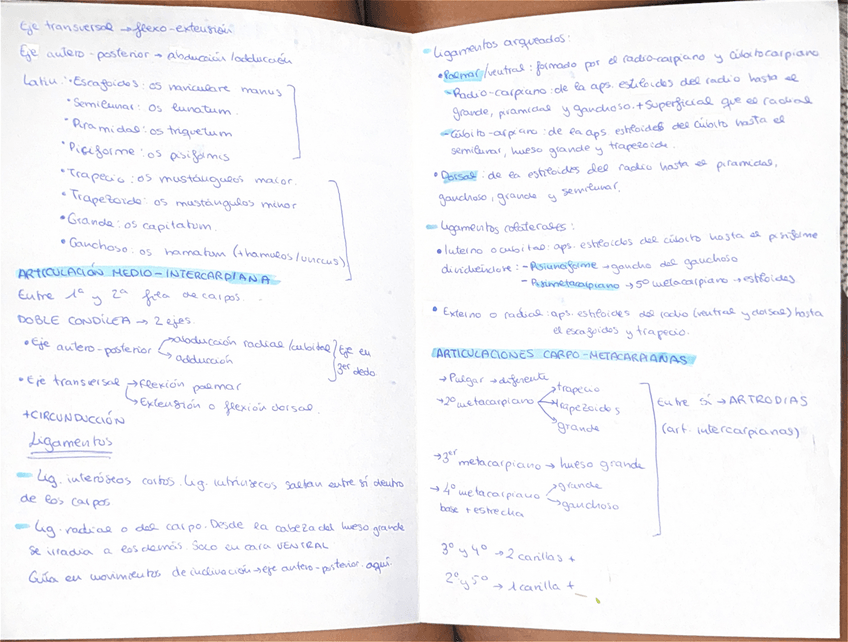 Eje transversal → flexo-extensión
Eje antero-posterior → abducción/adducción
Latín: • Escafoides: os naviculare manus
• Semilunar: os lunatum.
• Piramidal: os triquetum
• Pisiforme: os pisiformis
• Trapecio: os mustángulos maior.
• Trapezoide: os mustángulos minor
• Grande: os capitatum.
• Ganchoso: os hamatum (+hamulos/uncus)
ARTICULACIÓN MEDIO-INTERCARDIANA
Entre 1ª y 2ª fila de carpos.
DOBLE CONDÍLEA → 2 ejes.
• Eje antero-posterior → abducción radial/cubital
→ adducción
Eje en 3er dedo
• Eje transversal → Flexión palmar
→ Extensión o flexión dorsal.
+CIRCUNDUCCIÓN
Ligamentos
- Lig. interóseos cortos. Lig. intrínsecos saltan entre sí dentro
de los carpos.
- Lig. radial o del carpo. Desde la cabeza del hueso grande
se irradia a los demás. Solo en cara VENTRAL
Guía en movimientos de inclinación → eje antero-posterior. aquí.
- Ligamentos arqueados:
• Palmar/ventral: formado por el radio-carpiano y cúbitocarpiano
- Radio-carpiano: de la aps. estiloides del radio hasta el
grande, piramidal y ganchoso. + superficial que el radial
- Cúbito-carpiano: de la aps. estiloides del cúbito hasta el
semilunar, hueso grande y trapezoide.
• Dorsal: de la estiloides del radio hasta el piramidal,
ganchoso, grande y semilunar.
- Ligamentos colaterales:
• Interno o cubital: aps. estiloides del cúbito hasta el pisiforme
dividiéndose: - Pisiunciforme → gancho del ganchoso
- Pisimetacarpiano → 5º metacarpiano → estiloides
• Externo o radial: aps. estiloides del radio (ventral y dorsal) hasta
el escafoides y trapecio.
ARTICULACIONES CARPO-METACARPIAÑAS
→ Pulgar → diferente
→ 2º metacarpiano → trapecio
→ trapezoides
→ grande
→ 3er metacarpiano → hueso grande
→ 4º metacarpiano → grande
→ ganchoso
base + estrecha
Entre sí → ARTRODIAS
(art. intercarpianas)
3º y 4º → 2 carillas +
2º y 5º → 1 carilla +